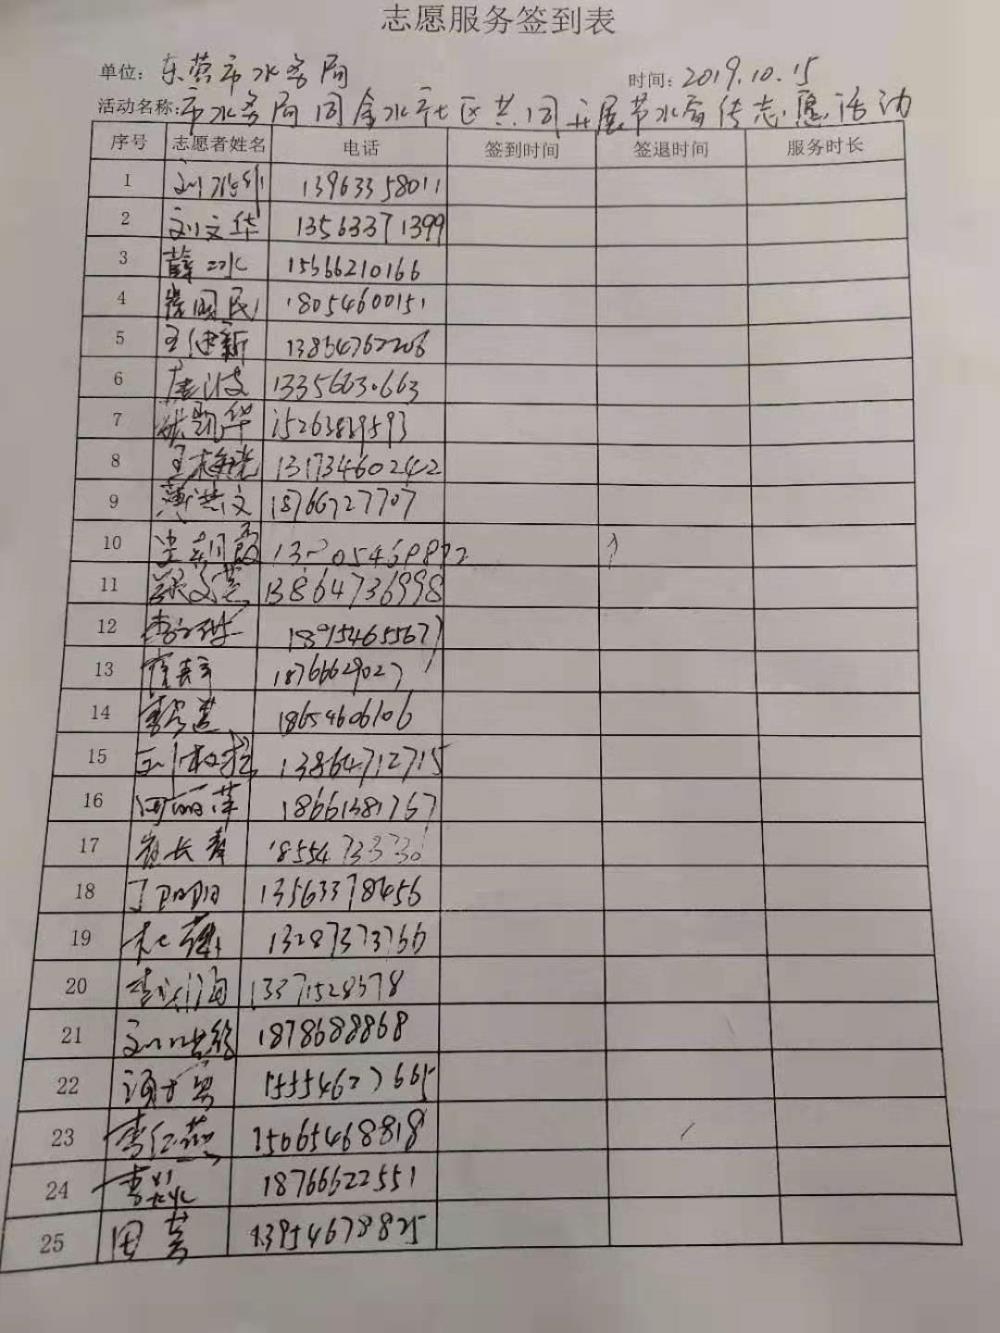 志愿服务签到表
单位：东营市水务局 时间：2019.10.15
活动名称：市水务局同金水社区共同开展节水宣传志愿活动
序号 志愿者姓名 电话 签到时间 签退时间 服务时长
1 13963358011
2 刘文华 13563371399
3 薛冰 15366210166
4 崔国民 18054600151
5 王建新 13864762206
6 13356630663
7 姚凯华 15263839593
8 王梅芝 13173460242
9 薄洪文 18766727707
10 朝霞
11 郑文英 13864736998
12 18915465567
13 18766629027
14 18654606106
15 13864712715
16 河丽萍 18661381767
17 崔长春 18554733730
18 丁阳阳 13563378456
19 杜 13287373766
20 李洪海 13371528578
21 1878688868
22 15554627665
23 李红燕 15065468818
24 李 18766622551
25 田芳 13954678825